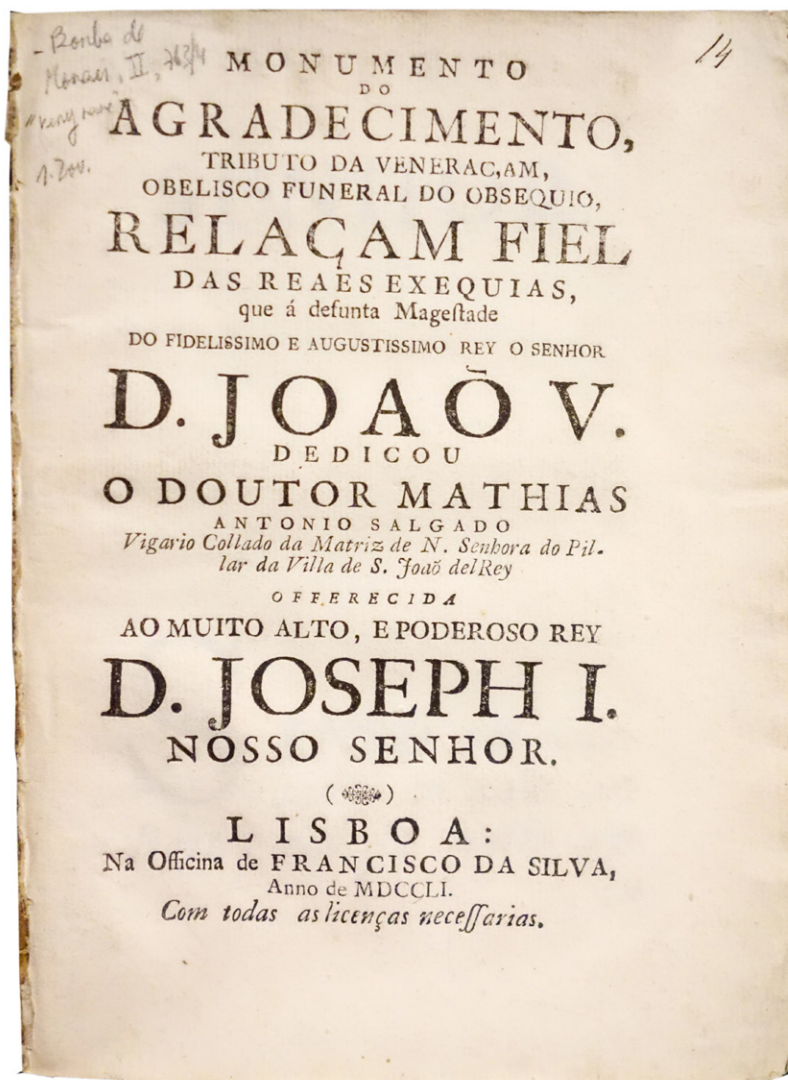 - Borba de
Moraes, II, 763/4
"very rare"
14
MONUMENTO
DO
AGRADECIMENTO,
TRIBUTO DA VENERAC,AM,
OBELISCO FUNERAL DO OBSEQUIO,
RELAÇAM FIEL
DAS REAES EXEQUIAS,
que á defunta Mageſtade
DO FIDELISSIMO E AUGUSTISSIMO REY O SENHOR
D. JOAÕ V.
DEDICOU
O DOUTOR MATHIAS
ANTONIO SALGADO
Vigario Collado da Matriz de N. Senhora do Pil-
lar da Villa de S. Joaõ delRey
OFFERECIDA
AO MUITO ALTO, E PODEROSO REY
D. JOSEPH I.
NOSSO SENHOR.
LISBOA:
Na Officina de FRANCISCO DA SILVA,
Anno de MDCCLI.
Com todas as licenças neceſſarias.